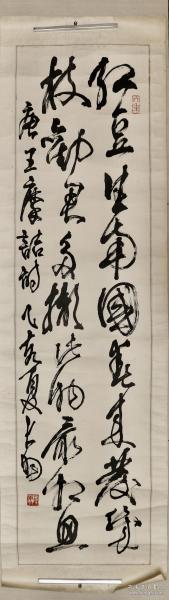 红豆生南國春来發幾
枝勸君多擷此物最相思
唐王摩詰詩 乙亥夏